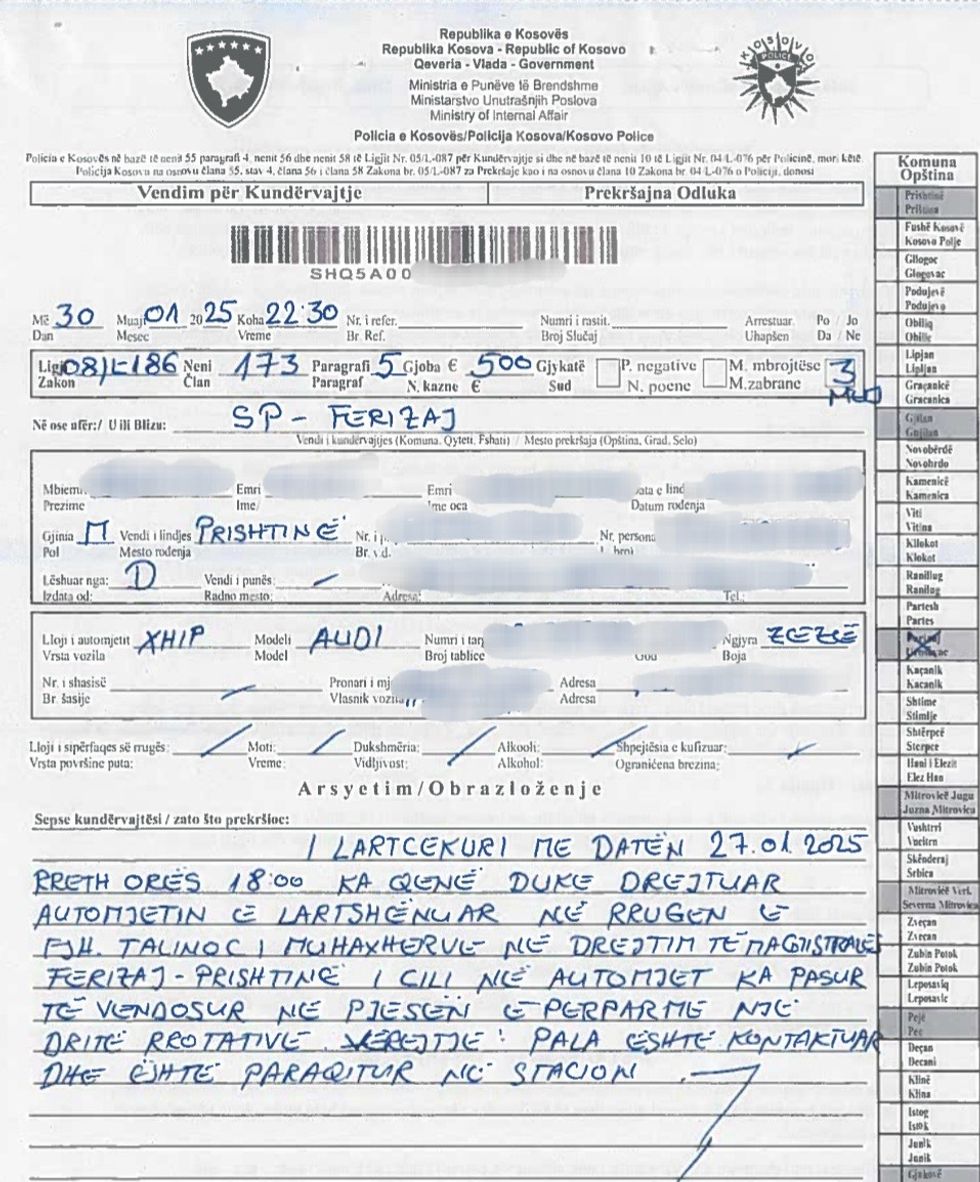 Republika e Kosovës
Republika Kosova - Republic of Kosovo
Qeveria - Vlada - Government
Ministria e Punëve të Brendshme
Ministarstvo Unutrašnjih Poslova
Ministry of Internal Affair
Policia e Kosovës/Policija Kosova/Kosovo Police
KOSOVO
POLICE
Policia e Kosovës në bazë të nenit 55 paragrafi 4, nenit 56 dhe nenit 58 të Ligjit Nr. 05/L-087 për Kundërvajtje si dhe në bazë të nenit 10 të Ligjit Nr. 04/L-076 për Policinë, mori këtë
Policija Kosova na osnovu člana 55, stav 4, člana 56 i člana 58 Zakona br. 05/L-087 za Prekršaje kao i na osnovu člana 10 Zakona br. 04/L-076 o Policiji, donosi
Vendim për Kundërvajtje Prekršajna Odluka
SHQ5A00
Më 30 Muaj 01 2025 Koha 22:30 Nr. i refer. Numri i rastit. Arrestuar. Po / Jo
Dan Mesec Vreme Br. Ref. Broj Slučaj Uhapšen Da / Ne
Ligji 08/L-186 Neni 173 Paragrafi 5 Gjoba € 500 Gjykatë P. negative M. mbrojtëse 3
Zakon Član Paragraf N. kazne € Sud N. poene M.zabrane
Në ose afër:/ U ili Blizu: SP - FERIZAJ
Vendi i kundërvajtjes (Komuna, Qyteti, Fshati) / Mesto prekršaja (Opština, Grad, Selo)
Emri Emri
Prezime Ime/ Ime oca Datum rođenja
Gjinia M Vendi i lindjes PRISHTINË Nr. persona
Pol Mesto rođenja
Lëshuar nga: D Vendi i punës:
Izdata od: Radno mesto: Adresa: Tel.:
Lloji i automjetit XHIP Modeli AUDI Ngjyra ZEZË
Vrsta vozila Model Broj tablice Boja
Nr. i shasisë Pronari i Adresa
Br. šasije Vlasnik Adresa
Lloji i sipërfaqes së rrugës: Moti: Dukshmëria: Alkooli: Shpejtësia e kufizuar:
Vrsta površine puta: Vreme: Vidljivost: Alkohol: Ograničena brezina:
Arsyetim/Obrazloženje
Sepse kundërvajtësi / zato što prekršioc:
I LARTCEKURI ME DATËN 27.01.2025
RRETH ORËS 18:00 KA QENË DUKE DREJTUAR
AUTOMJETIN E LARTSHËNUAR NË RRUGEN E
FSH. TALINOC I MUHAXHERVE NË DREJTIM TË MAGJISTRALES
FERIZAJ - PRISHTINË I CILI NË AUTOMJET KA PASUR
TË VENDOSUR NË PJESËN E PERPARME NJË
DRITË RROTATIVE. VËREJTJE: PALA ËSHTË KONTAKTUAR
DHE ËSHTË PARAQITUR NË STACION.
Komuna
Opština
Prishtinë
Priština
Fushë Kosovë
Kosovo Polje
Gllogoc
Glogovac
Podujevë
Podujevo
Obiliq
Obilic
Lipjan
Lipljan
Graçanicë
Gracanica
Gjilan
Gnjilan
Novobërdë
Novobrdo
Kamenicë
Kamenica
Viti
Vitina
Kllokot
Klokot
Ranillug
Ranilug
Partesh
Partes
Ferizaj
Uroševac
Kaçanik
Kacanik
Shtime
Stimlje
Shtërpcë
Sterpce
Hani i Elezit
Elez Han
Mitrovicë Jugu
Juzna Mitrovica
Vushtrri
Vucitrn
Skënderaj
Srbica
Mitrovicë Veri.
Severna Mitrovica
Zveçan
Zvecan
Zubin Potok
Zubin Potok
Leposaviq
Leposavic
Pejë
Pec
Deçan
Decani
Klinë
Klina
Istog
Istok
Junik
Junik
Gjakovë